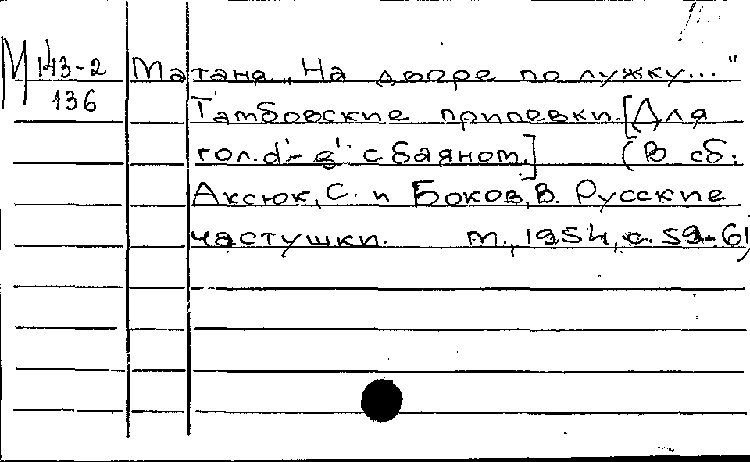 М 143-2 Матаня „На дворе по лужку..."
136 Тамбовские припевки. [Для
гол. d'- g'' с баяном.] (В сб.
Аксюк, С. и Боков, В. Русские
частушки. М., 1954, с. 59-61)